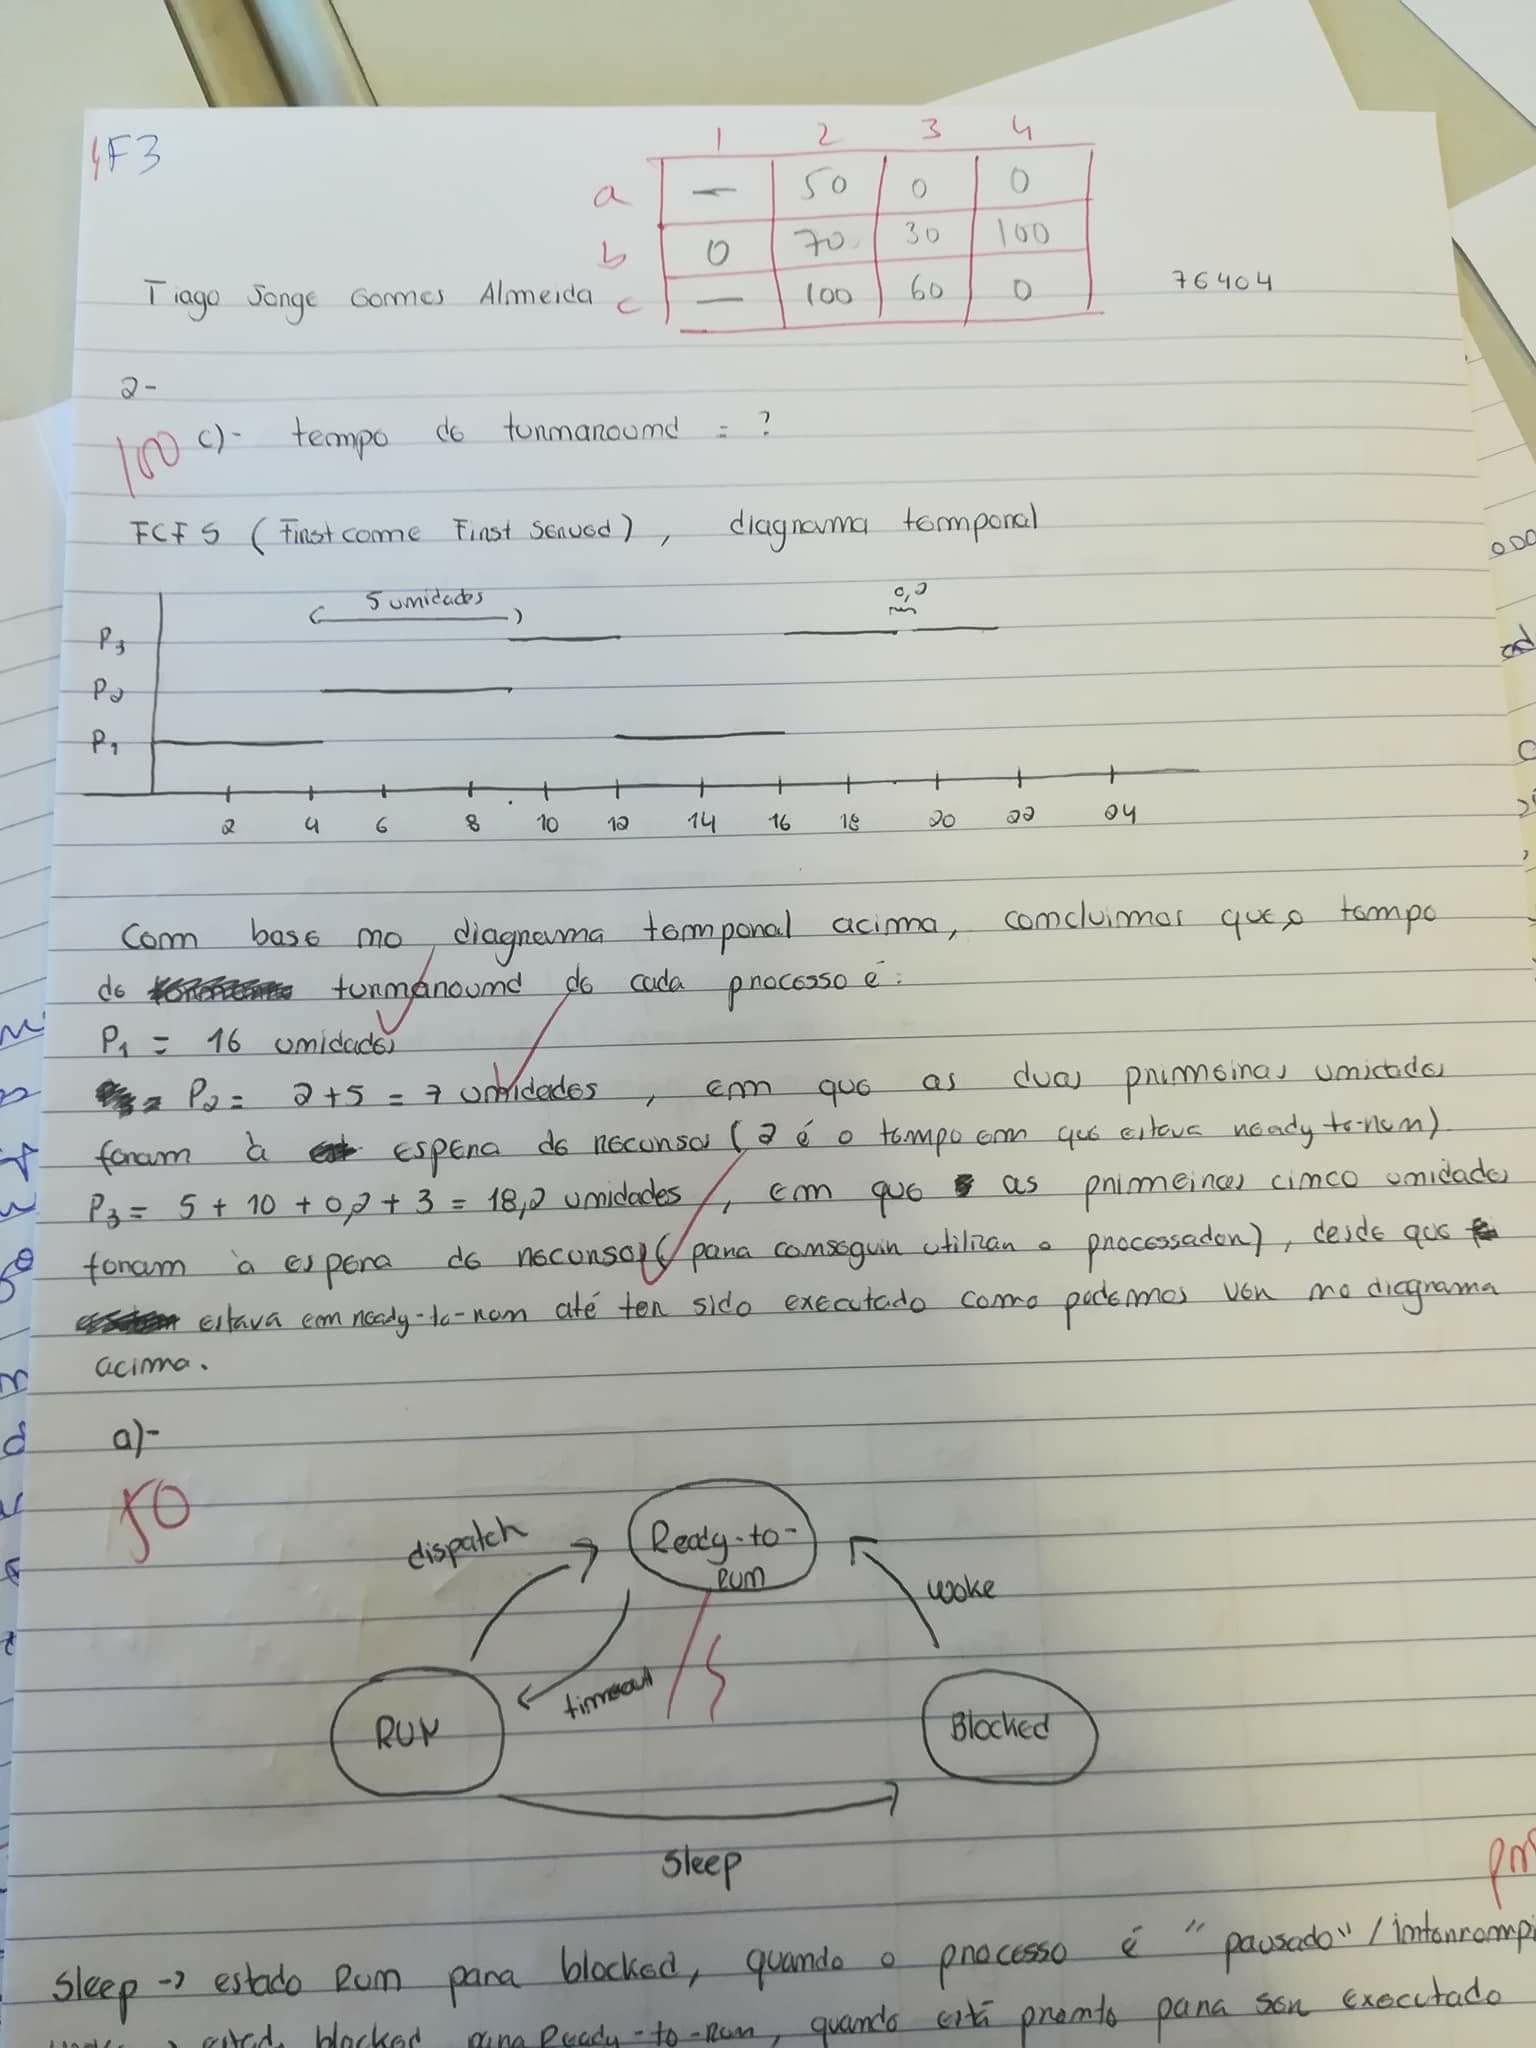 4F3
1 2 3 4
a — 50 0 0
b 0 70 30 100
Tiago Jorge Gomes Almeida c — 100 60 0 76404
2-
100 c)- tempo de turnaround = ?
FCFS (First come First Served), diagrama temporal
5 unidades 0,2
P3
P2
P1
2 4 6 8 10 12 14 16 18 20 22 24
Com base no diagrama temporal acima, concluimos que o tempo
de turnaround de cada processo é:
P1 = 16 unidades
P2 = 2+5 = 7 unidades, em que as duas primeiras unidades
foram à espera de recursos (2 é o tempo em que estava ready-to-run)
P3 = 5 + 10 + 0,2 + 3 = 18,2 unidades, em que as primeiras cinco unidades
foram à espera de recursos (para conseguir utilizar o processador), desde que
estava em ready-to-run até ter sido executado como podemos ver no diagrama
acima.
a)-
50
dispatch Ready-to-RUN woke
timeout
RUN Blocked
Sleep
Sleep -> estado Run para blocked, quando o processo é "pausado"/interrompi
blocked para Ready-to-Run, quando está pronto para ser executado